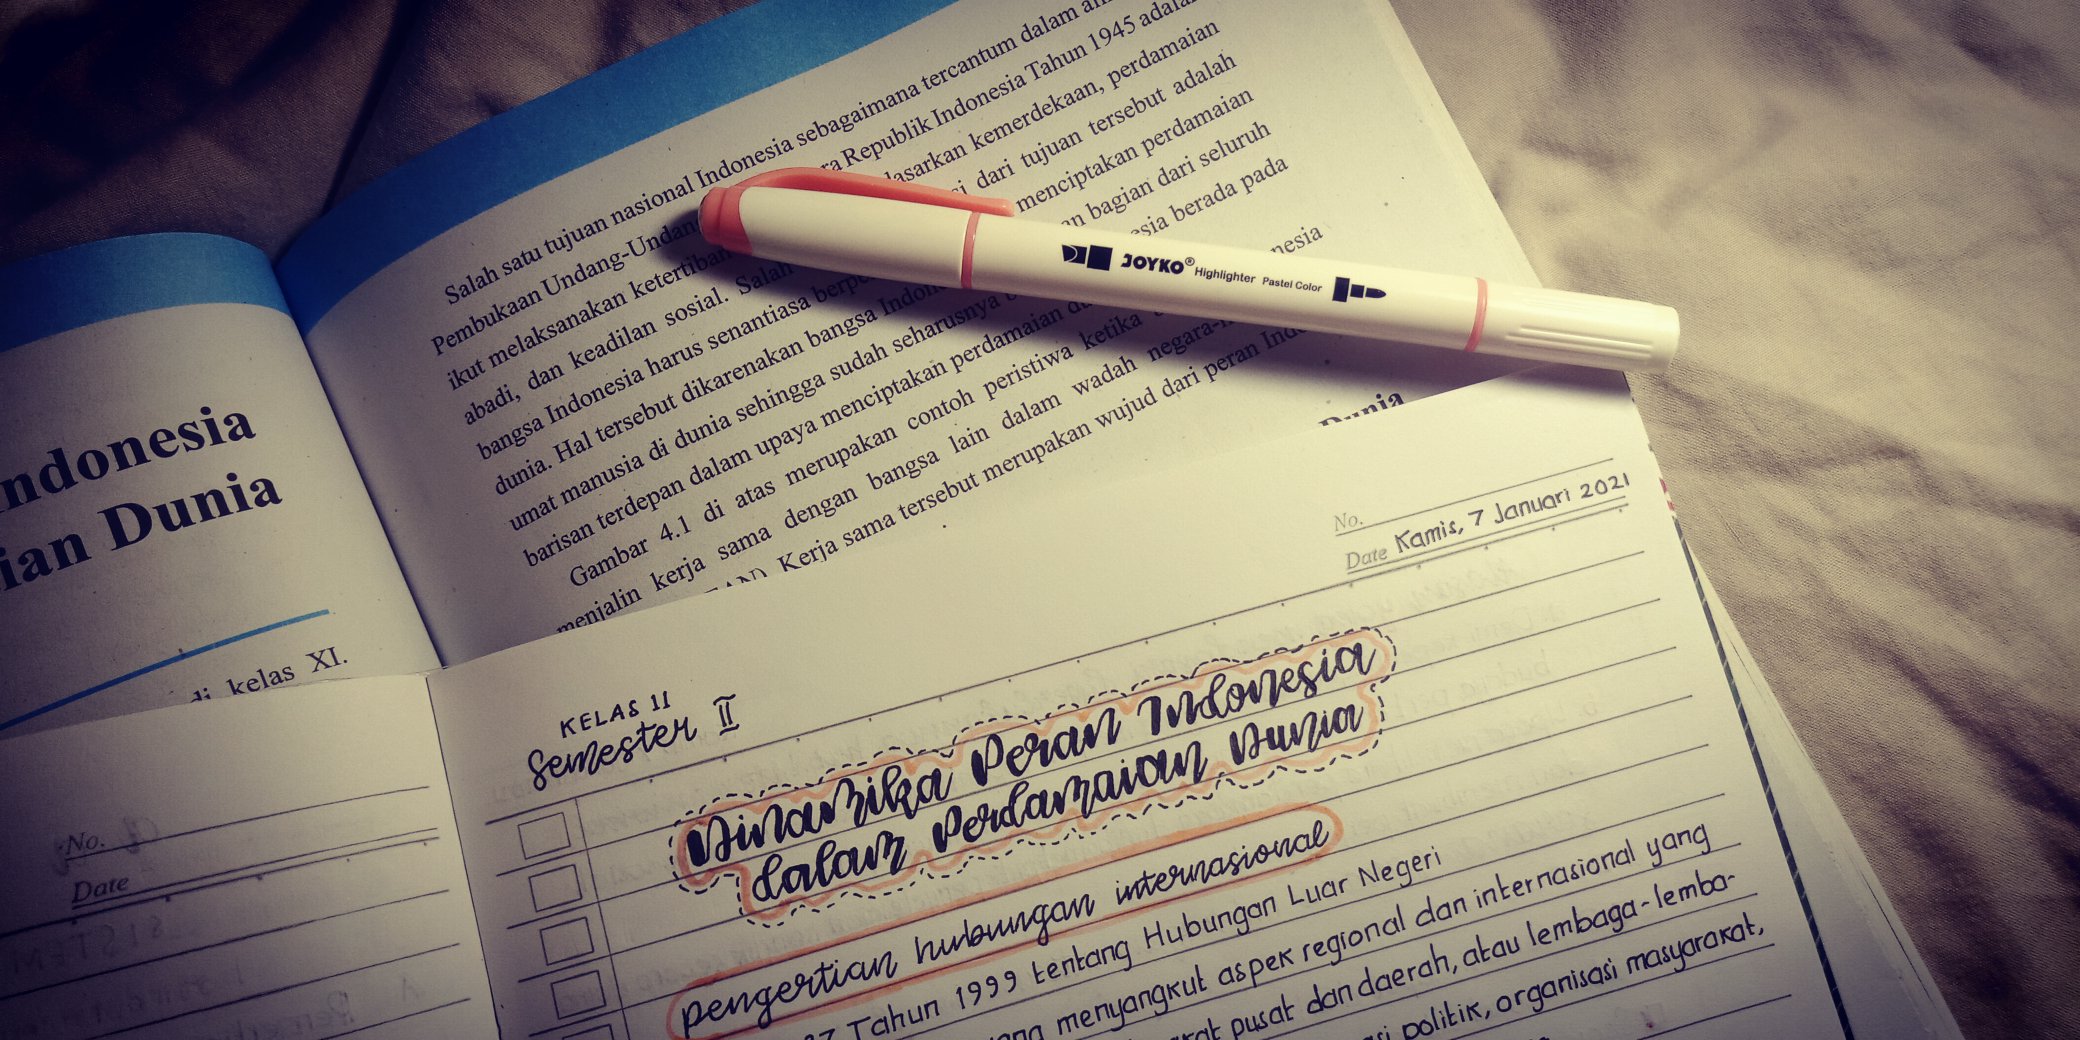 ndonesia
ian Dunia
di kelas XI.
Salah satu tujuan nasional Indonesia sebagaimana tercantum dalam
Pembukaan Undang-Undang Republik Indonesia Tahun 1945 adalah
ikut melaksanakan ketertiban kemerdekaan, perdamaian
abadi, dan keadilan sosial. Salah dari tujuan tersebut adalah
bangsa Indonesia harus senantiasa menciptakan perdamaian
dunia. Hal tersebut dikarenakan bangsa bagian dari seluruh
umat manusia di dunia sehingga sudah seharusnya berada pada
barisan terdepan dalam upaya menciptakan perdamaian
Gambar 4.1 di atas merupakan contoh peristiwa ketika nesia
menjalin kerja sama dengan bangsa lain dalam wadah
Kerja sama tersebut merupakan wujud dari peran
Dunia
JOYKO® Highlighter Pastel Color
No.
Date Kamis, 7 Januari 2021
No.
Date
KELAS 11
Semester II
Dinamika Peran Indonesia
dalam Perdamaian Dunia
pengertian hubungan internasional
37 Tahun 1999 tentang Hubungan Luar Negeri
menyangkut aspek regional dan internasional yang
pusat dan daerah, atau lembaga-lemba-
politik, organisasi masyarakat,